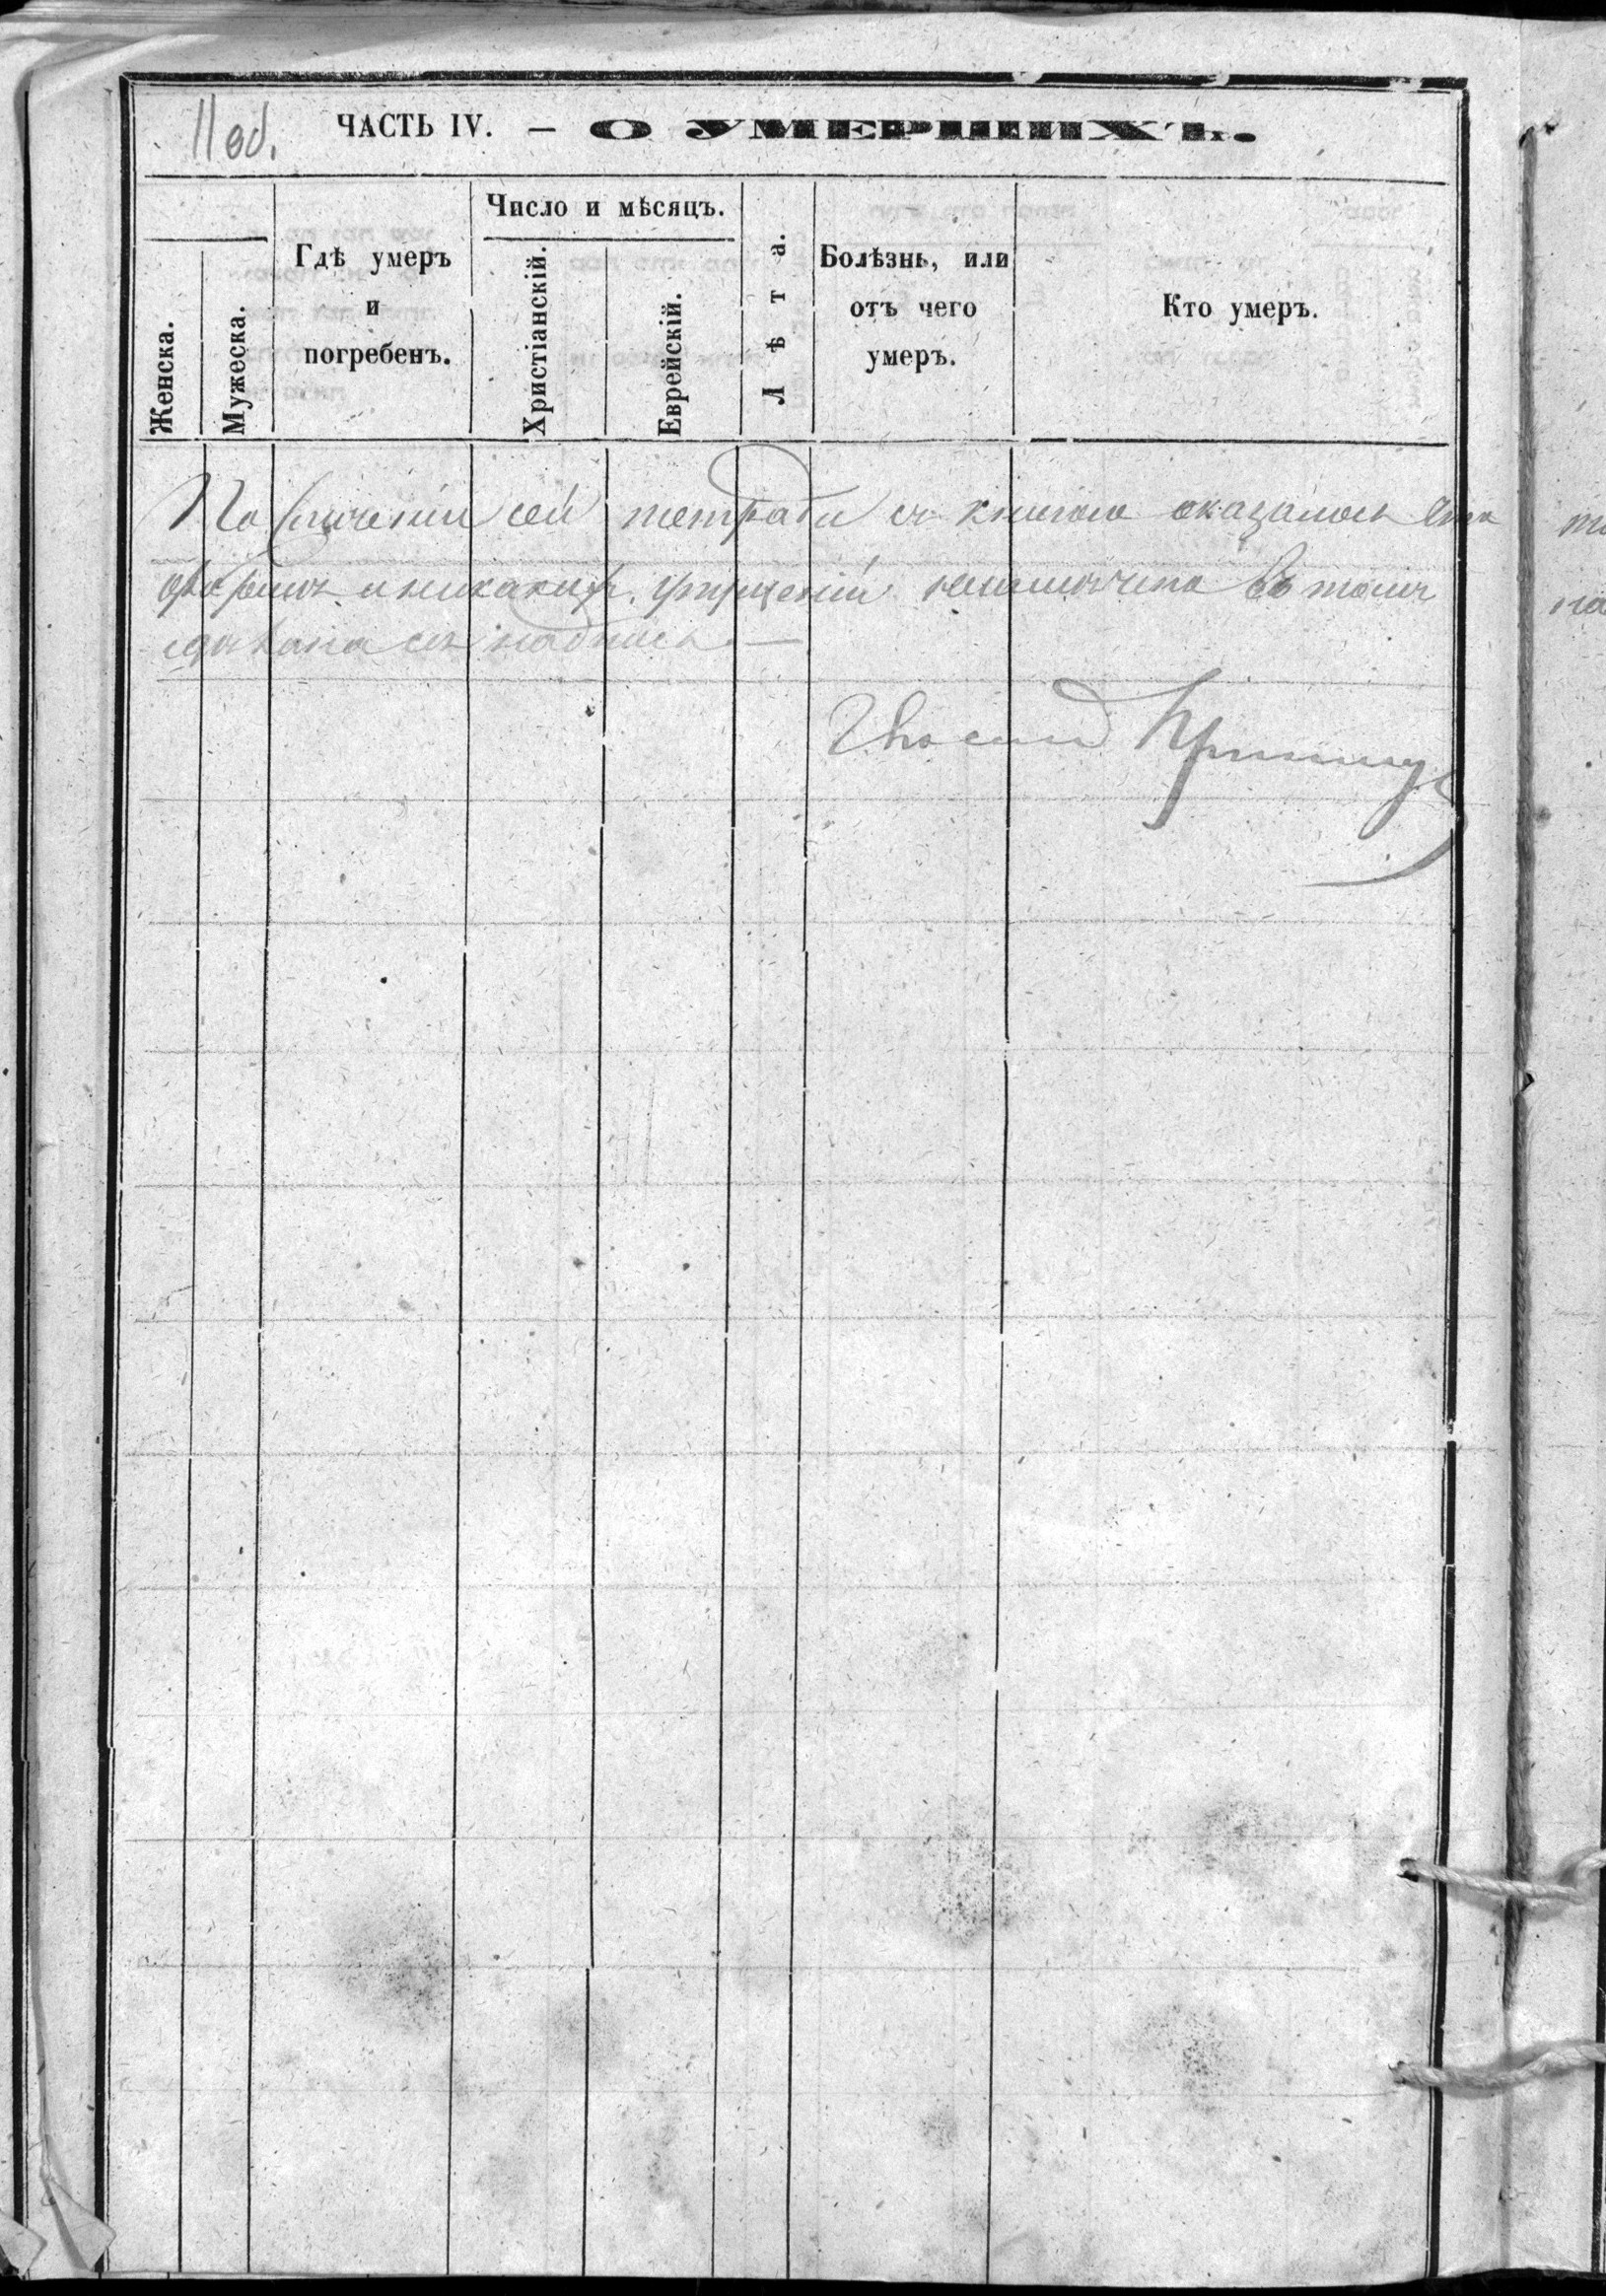 11 об.
ЧАСТЬ IV. — О УМЕРШИХЪ.
Женска.
Мужеска.
Гдѣ умеръ
и
погребенъ.
Число и мѣсяцъ.
Христіанскій.
Еврейскій.
Лѣта.
Болѣзнь, или
отъ чего
умеръ.
Кто умеръ.
По сличеніи сей тетради съ книгою оказалось
и никакихъ упущеній въ томъ
сдѣлана сія надпись —